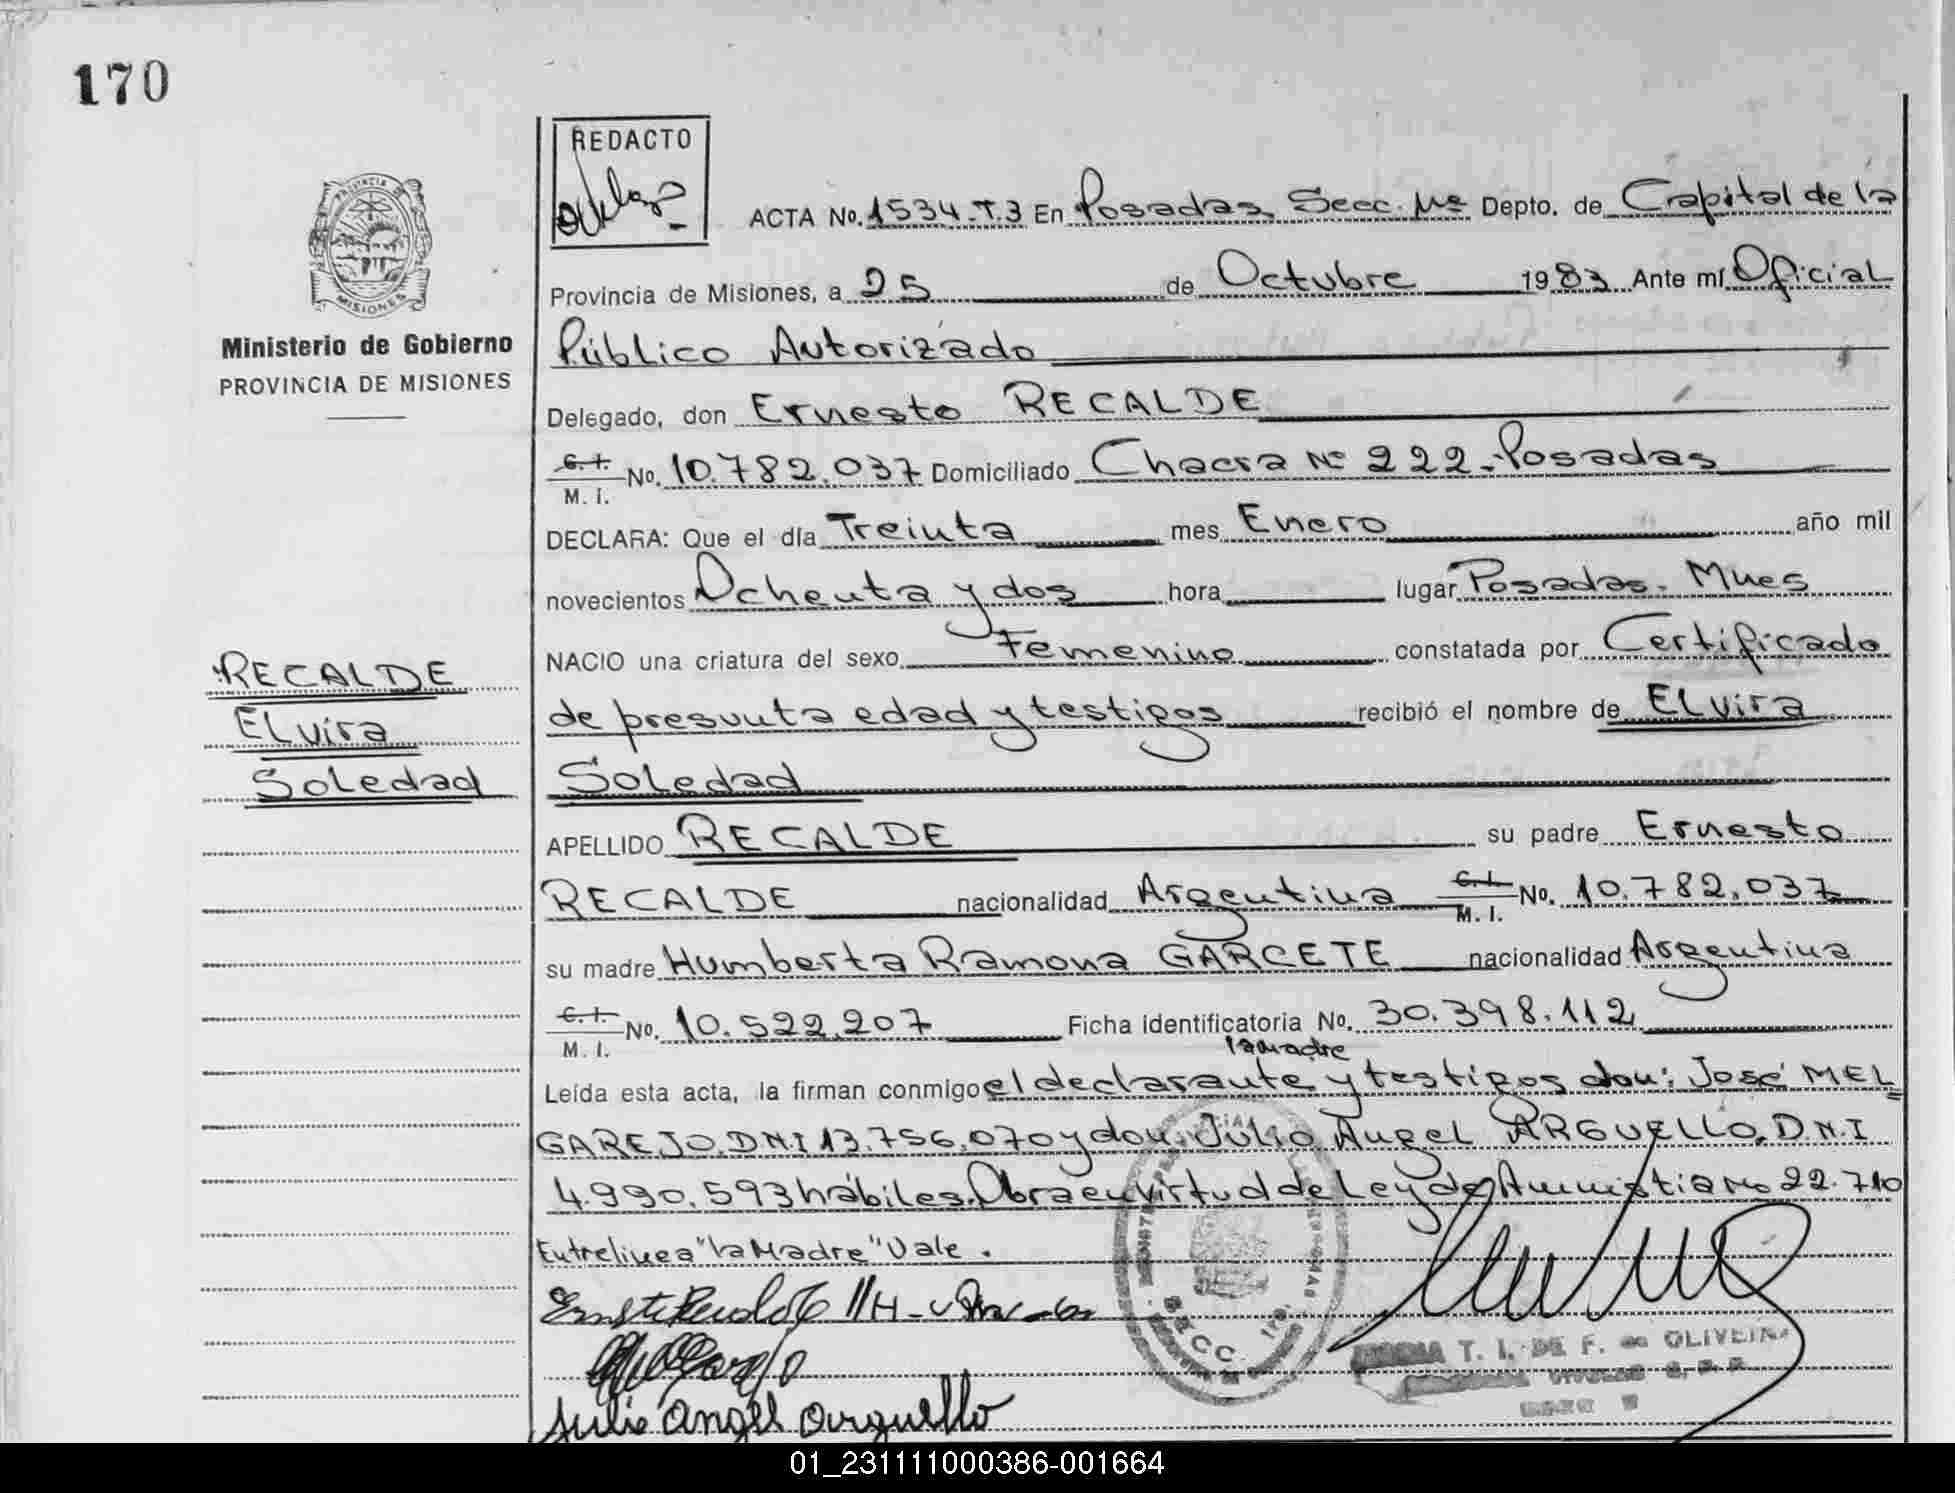 170
REDACTO
PROVINCIA DE
MISIONES
Ministerio de Gobierno
PROVINCIA DE MISIONES
ACTA No. 1534.T.3 En Posadas Secc. 1ra Depto. de Capital de la
Provincia de Misiones, a 25 de Octubre 1983 Ante mí Oficial
Público Autorizado
Delegado, don Ernesto RECALDE
C. I. M. I. No. 10.782.037 Domiciliado Chacra Nº 222-Posadas
DECLARA: Que el día Treinta mes Enero año mil
novecientos Ochenta y dos hora lugar Posadas. Mnes
NACIO una criatura del sexo Femenino constatada por Certificado
de presunta edad y testigos recibió el nombre de Elvira
Soledad
APELLIDO RECALDE su padre Ernesto
RECALDE nacionalidad Argentina C. I. M. I. No. 10.782.037
su madre Humberta Ramona GARCETE nacionalidad Argentina
C. I. M. I. No. 10.522.207 Ficha identificatoria No. 30.398.112
la madre
Leída esta acta, la firman conmigo el declarante y testigos don: José MEL=
GAREJO. D.N.I 13.756.070 y don: Julio Angel ARGUELLO. D.N.I
4.990.593 hábiles. Obra en virtud de Ley de Amnistia No 22.710
Entrelinea "la Madre" Vale.
Julio Angel Arguello
T. I. DE F. de OLIVEIRA
RECALDE
Elvira
Soledad
01_231111000386-001664